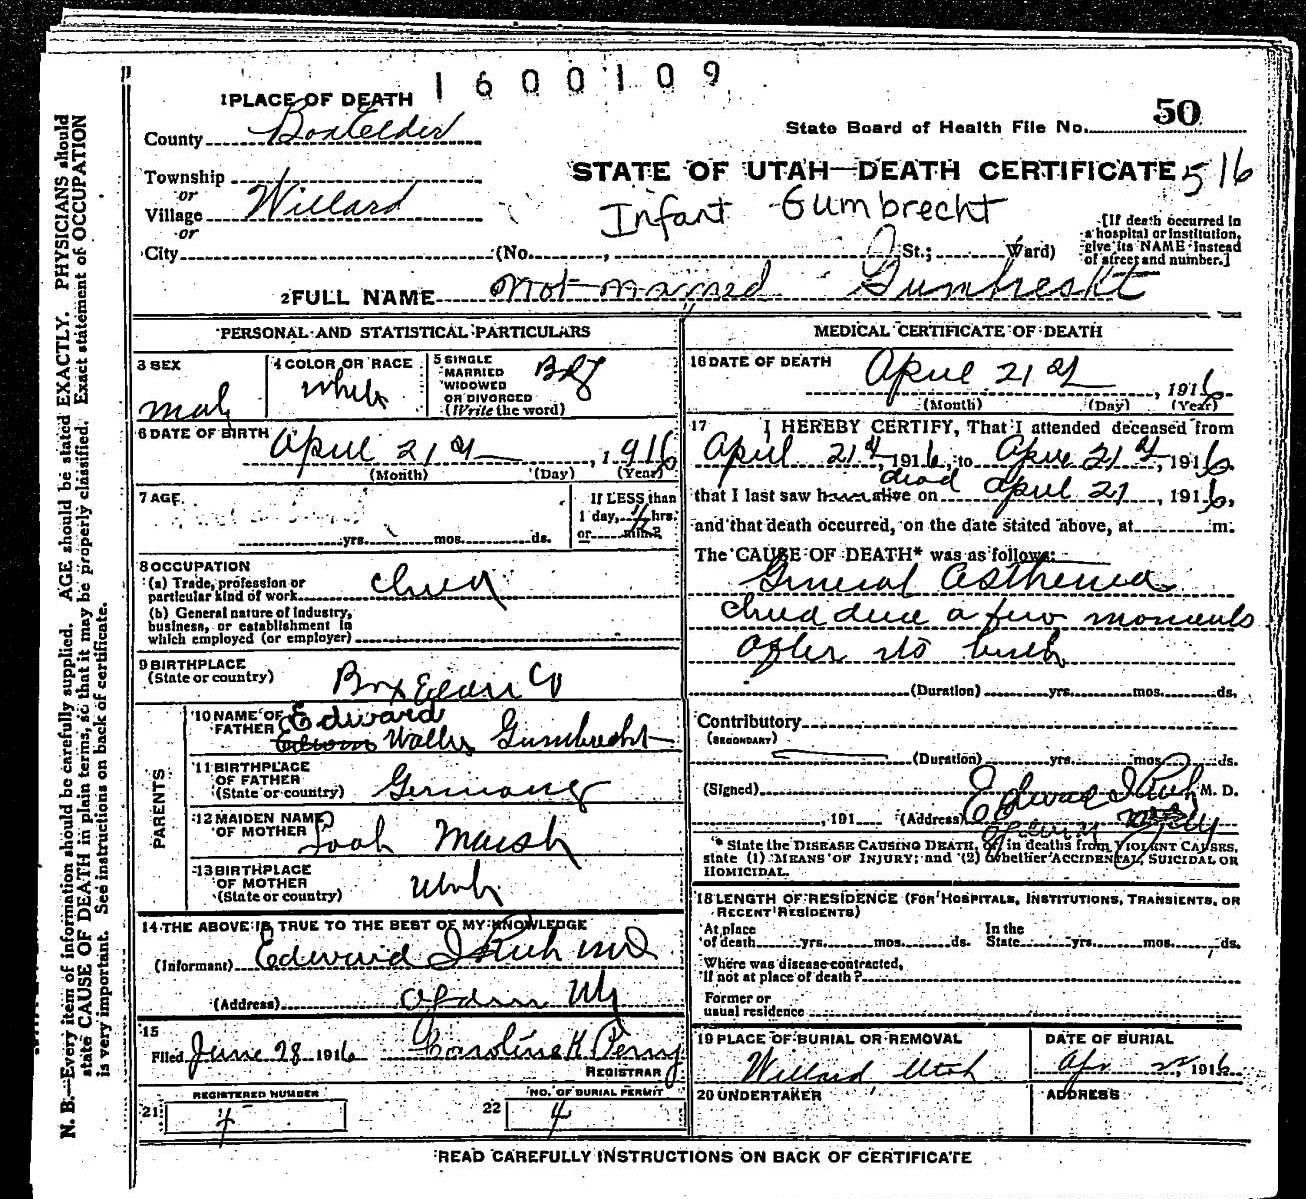 1600109
1 PLACE OF DEATH
County Box Elder
State Board of Health File No. 50
Township
or
Village Willard
or
City
STATE OF UTAH—DEATH CERTIFICATE 516
Infant Gumbrecht
(No. , St.; Ward)
[If death occurred in
a hospital or institution,
give its NAME instead
of street and number.]
2 FULL NAME Not named Gumbresht
PERSONAL AND STATISTICAL PARTICULARS
3 SEX
Male
4 COLOR OR RACE
White
5 SINGLE
MARRIED
WIDOWED
OR DIVORCED
(Write the word)
6 DATE OF BIRTH April 21st, 1916
(Month) (Day) (Year)
7 AGE
yrs. mos. ds.
If LESS than
1 day, hrs.
or min.?
8 OCCUPATION
(a) Trade, profession or
particular kind of work
(b) General nature of industry,
business, or establishment in
which employed (or employer)
9 BIRTHPLACE
(State or country) Box Elder Co
PARENTS
10 NAME OF
FATHER Edward
Gumbrecht
11 BIRTHPLACE
OF FATHER
(State or country) Germany
12 MAIDEN NAME
OF MOTHER Marsh
13 BIRTHPLACE
OF MOTHER
(State or country) Utah
14 THE ABOVE IS TRUE TO THE BEST OF MY KNOWLEDGE
(Informant) Edward I Rich MD
(Address) Ogden Ut
15
Filed June 28 1916 Caroline K Perry
REGISTRAR
REGISTERED NUMBER
21 4
NO. OF BURIAL PERMIT
22 4
MEDICAL CERTIFICATE OF DEATH
16 DATE OF DEATH
April 21st, 1916
(Month) (Day) (Year)
17 I HEREBY CERTIFY, That I attended deceased from
April 21st, 1916, to April 21st, 1916,
that I last saw h alive dead on April 21, 1916,
and that death occurred, on the date stated above, at m.
The CAUSE OF DEATH* was as follows:
General Asthenia
Child died a few moments
after its birth
(Duration) yrs. mos. ds.
Contributory
(SECONDARY)
(Duration) yrs. mos. ds.
(Signed) Edward I Rich M. D.
, 191 (Address)
* State the DISEASE CAUSING DEATH, or in deaths from VIOLENT CAUSES,
state (1) MEANS OF INJURY; and (2) whether ACCIDENTAL, SUICIDAL OR
HOMICIDAL.
18 LENGTH OF RESIDENCE (FOR HOSPITALS, INSTITUTIONS, TRANSIENTS, OR
RECENT RESIDENTS)
At place
of death yrs. mos. ds.
In the
State yrs. mos. ds.
Where was disease contracted,
if not at place of death?
Former or
usual residence
19 PLACE OF BURIAL OR REMOVAL
Willard, Utah
DATE OF BURIAL
Apr 22, 1916
20 UNDERTAKER
ADDRESS
READ CAREFULLY INSTRUCTIONS ON BACK OF CERTIFICATE
N. B.—Every item of information should be carefully supplied. AGE should be stated EXACTLY. PHYSICIANS should
state CAUSE OF DEATH in plain terms, so that it may be properly classified. Exact statement of OCCUPATION
is very important. See instructions on back of certificate.